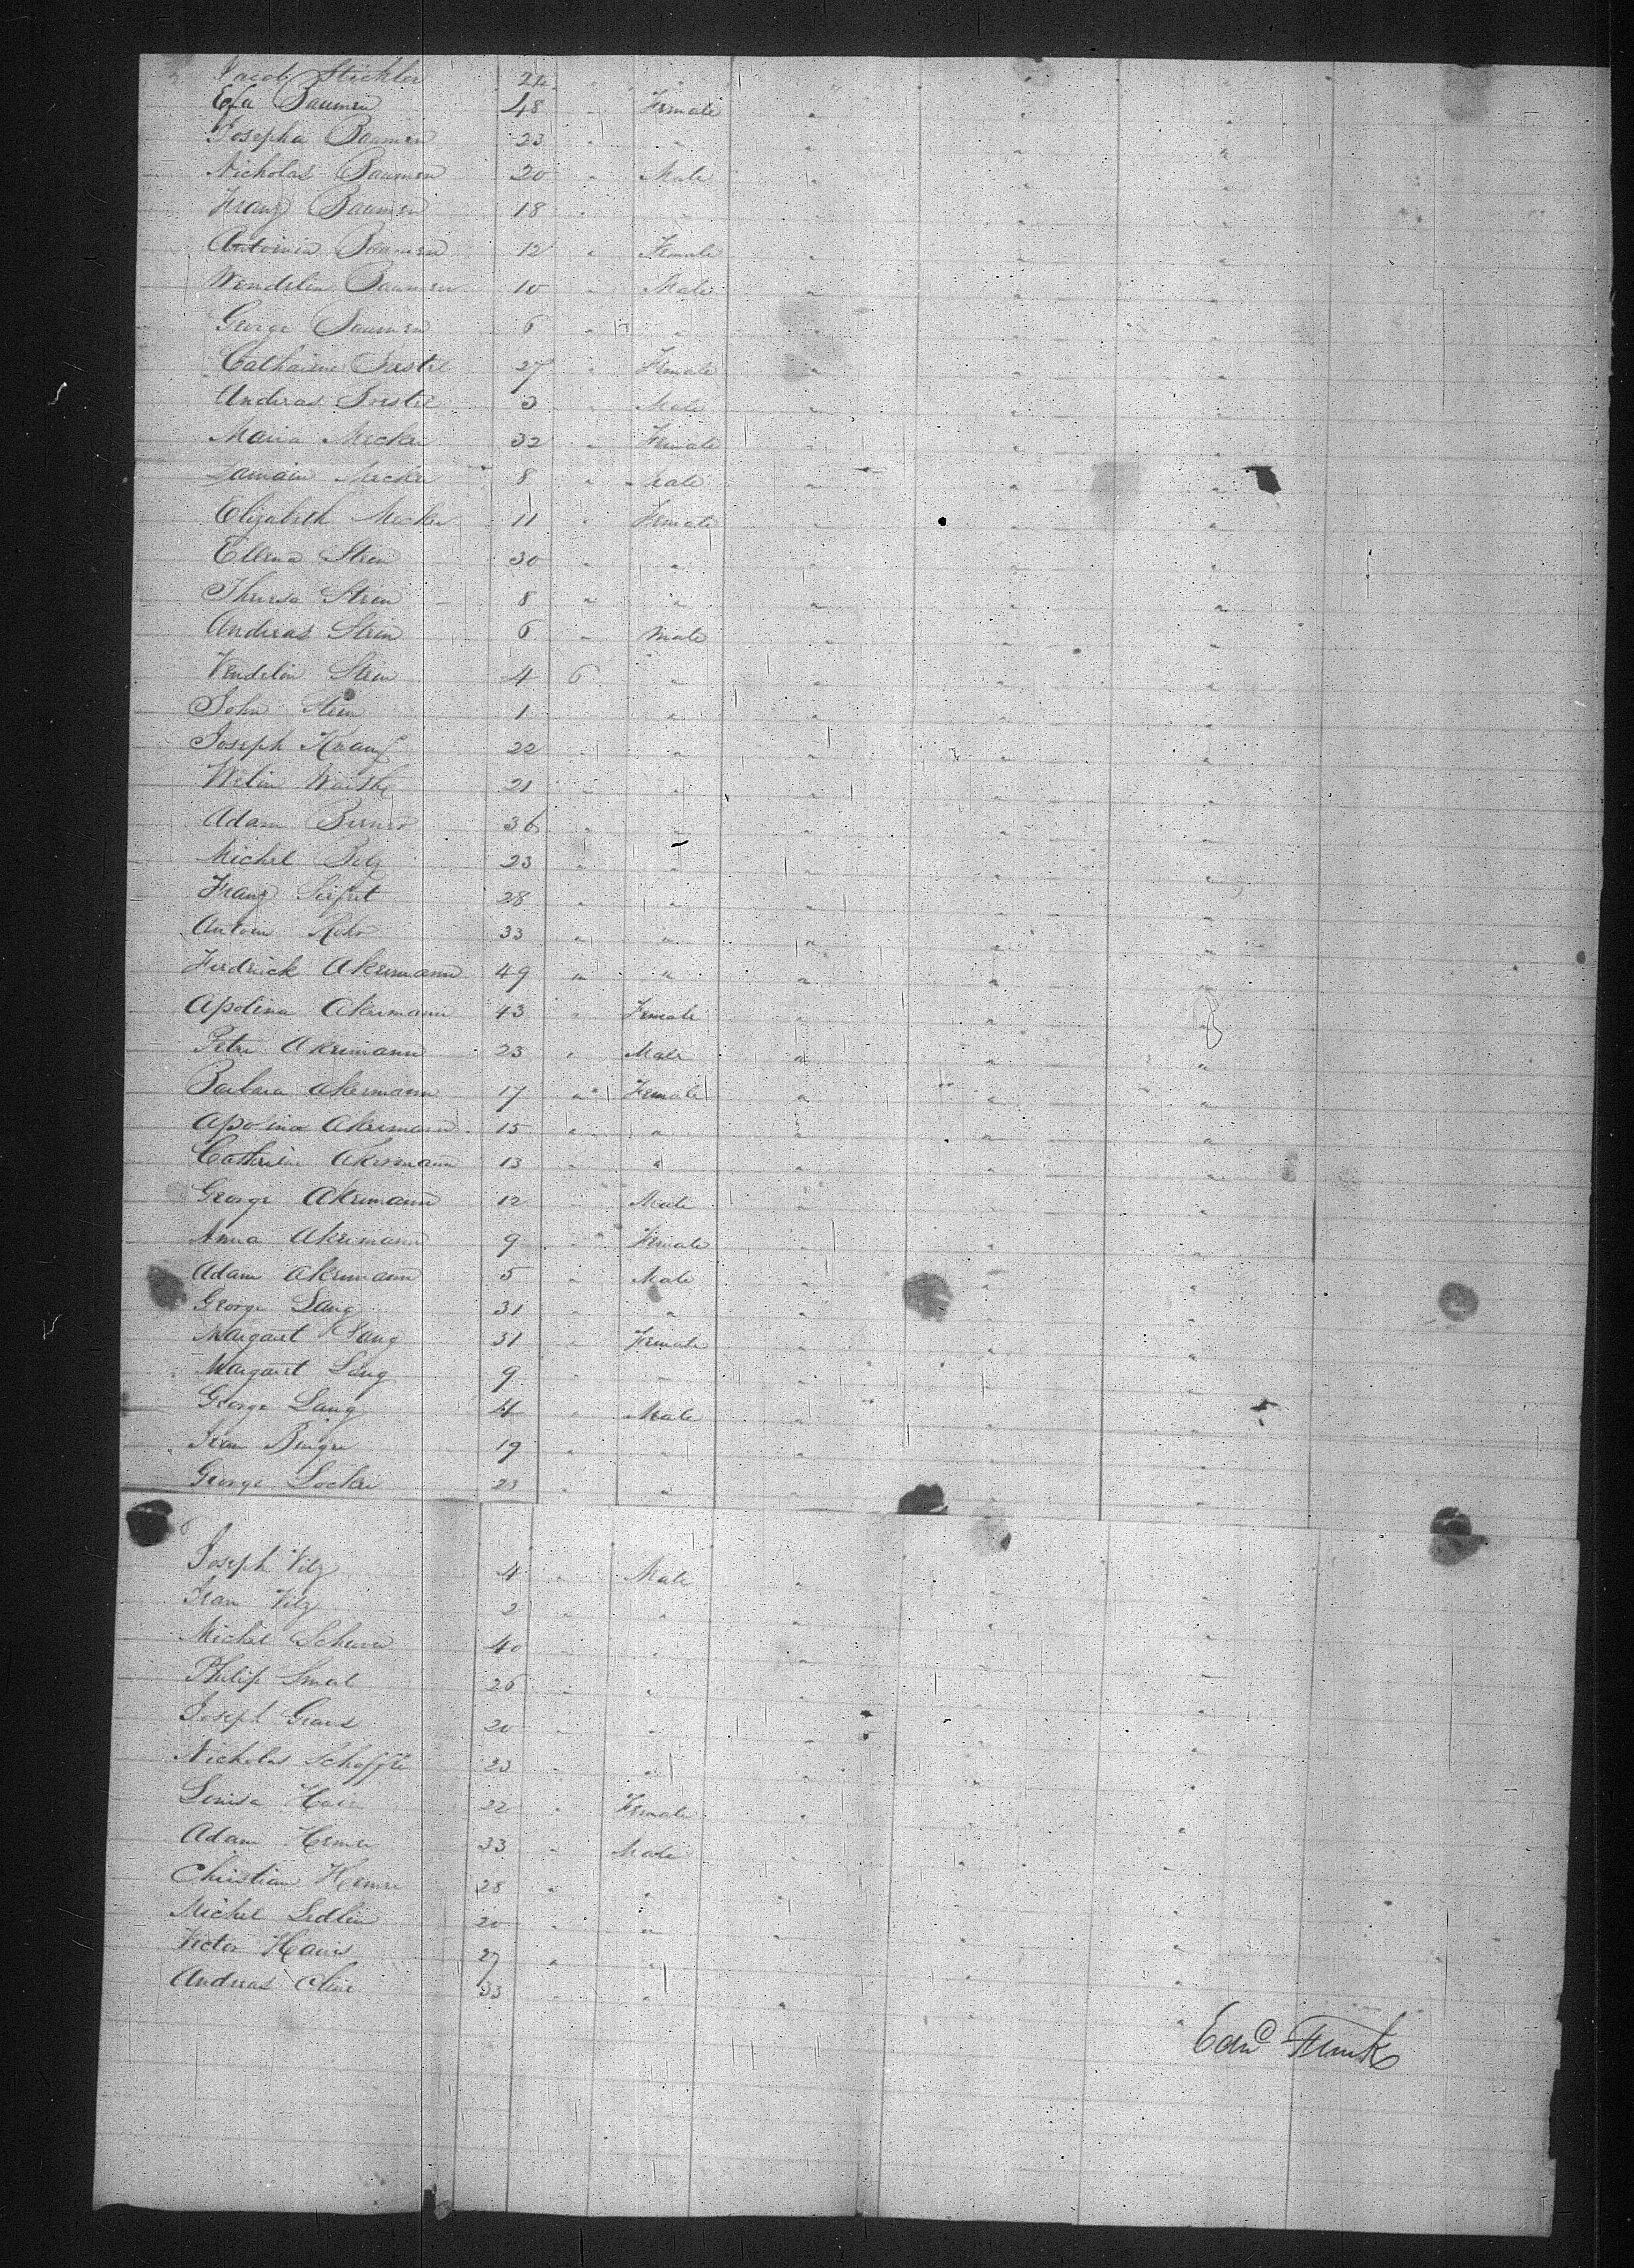 Jacob Stickler 24 "
Efa Baumen 48 " Female "
Josepha Baumen 23 " " "
Nicholas Baumen 20 " Male "
Franz Baumen 18 " "
Antonia Baumen 12 " Female "
Wendelin Baumen 10 " Male "
George Baumen 6 " " "
Catharine 27 " Female "
Andreas 3 " Male "
Maria Mecker 32 " Female "
Mecker 8 " Male "
Elizabeth Mecker 11 " Female "
Ellena Stein 30 " " "
Theresa Stein 8 " " "
Andreas Stein 6 " Male "
Vendelin Stein 4 6 " "
John Stein 1 " "
Joseph Knauf 22 " " "
21 " " "
Adam 36 " " "
Michel Betz 23 " " "
Franz Seifret 28 " " "
Antoin Rohr 33 " " "
Fredrick Akermann 49 " " "
Apolina Akermann 43 " Female "
Peter Akermann 23 " Male "
Barbara Akermann 17 " Female "
Apolina Akermann 15 " " "
Cathrein Akermann 13 " " "
George Akermann 12 " Male "
Anna Akermann 9 " Female "
Adam Akermann 5 " Male "
George Lang 31 " " "
Margaret Lang 31 " Female "
Margaret Lang 9 " " "
George Lang 4 " Male "
Jean 19 " " "
George Locker 23 " " "
Joseph Vilz 4 " Male "
Jean Vilz 2 " " "
Michel 40 " " "
Philip Smal 26 " " "
Joseph 20 " " "
Nicholas Schaffle 23 " " "
Louisa 22 " Female "
Adam Hemer 33 " Male "
Christian Hemer 28 " " "
Michel Sedlin 20 " " "
Victor 27 " " "
Andreas 33 " " "
Edw^d